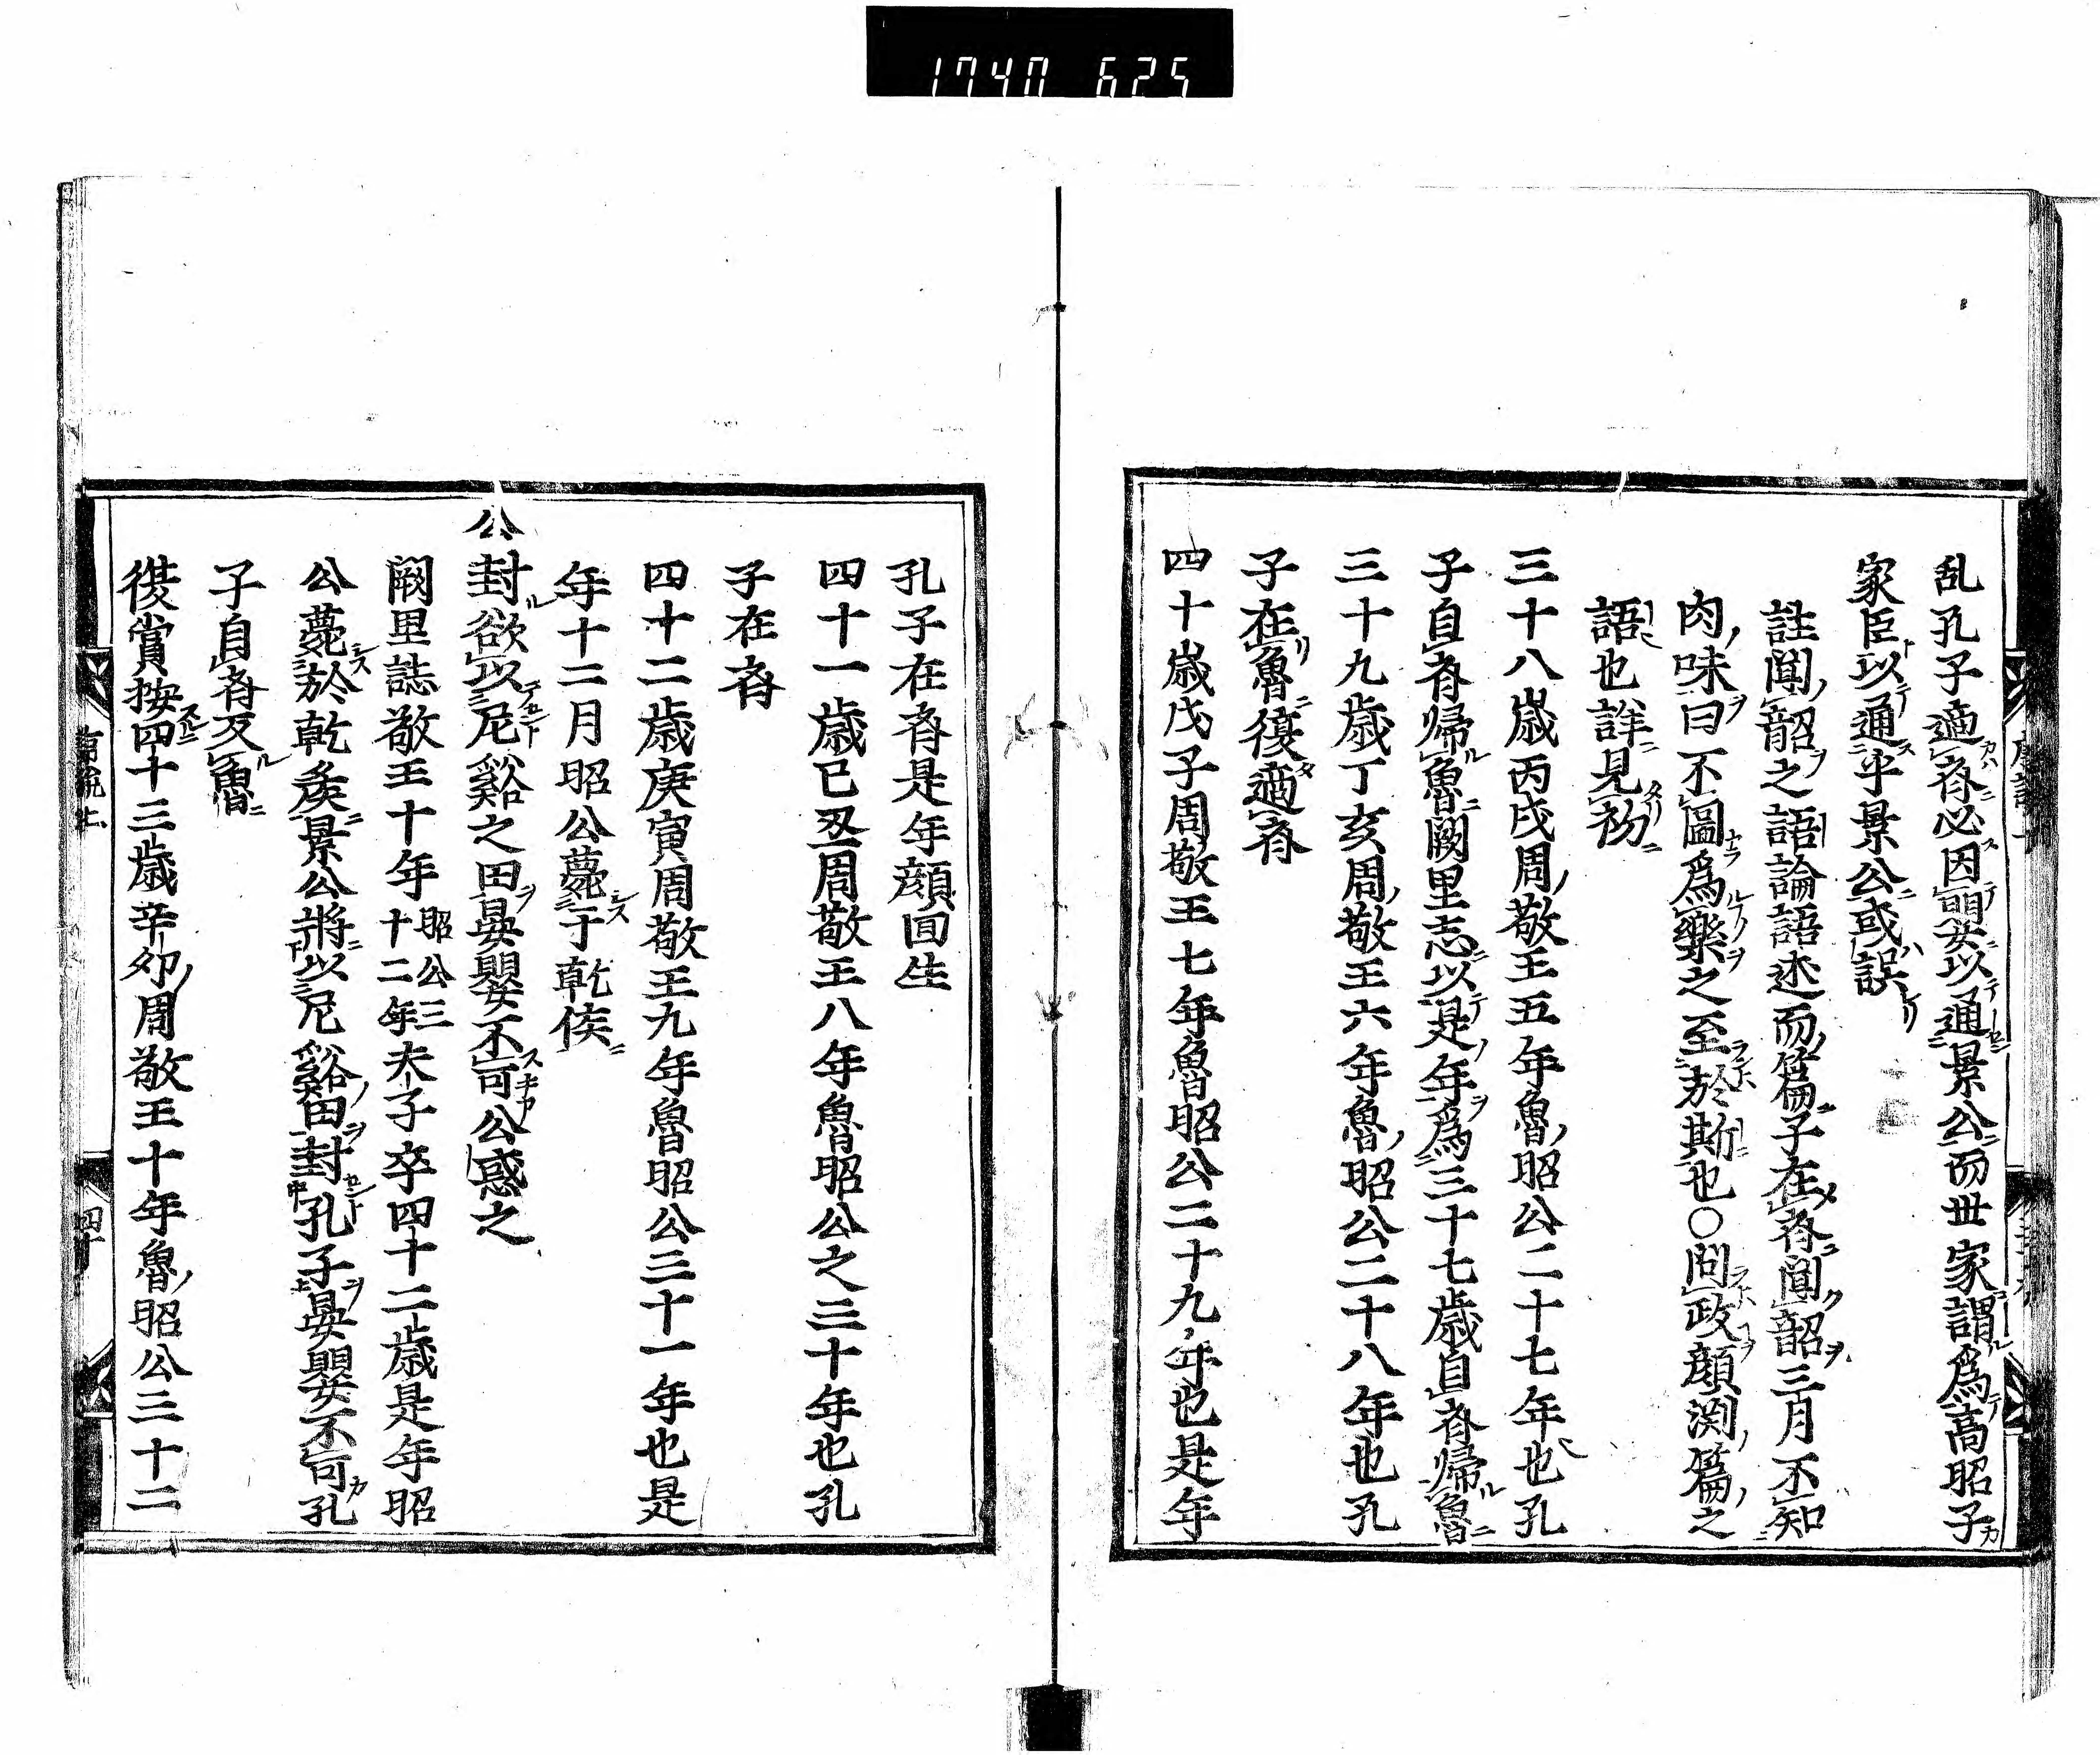 1740 625
乱孔子適斉必因晏嬰以通景公而世家謂爲高昭子
家臣以通乎景公或誤
註聞韶之語論語述而篇子在斉聞韶三月不知
肉味曰不啚爲樂之至於斯也○問政顔渕篇之
語也詳見初
三十八歳丙戌周敬王五年魯昭公二十七年也孔
子自斉帰魯闕里志以是年爲三十七歳自斉帰魯
三十九歳丁亥周敬王六年魯昭公二十八年也孔
子在魯復適斉
四十歳戊子周敬王七年魯昭公二十九年也是年
孔子在斉是年顔回生
四十一歳己丑周敬王八年魯昭公之三十年也孔
子在斉
四十二歳庚寅周敬王九年魯昭公三十一年也是
年十二月昭公薨于乾侯
公封欲以尼谿之田晏嬰不可公惑之
闕里誌敬王十年昭公三十二年夫子卒四十二歳是年昭
公薨於乾侯景公將以尼谿田封孔子晏嬰不可孔
子自斉反魯
後賞按四十三歳辛卯周敬王十年魯昭公三十二